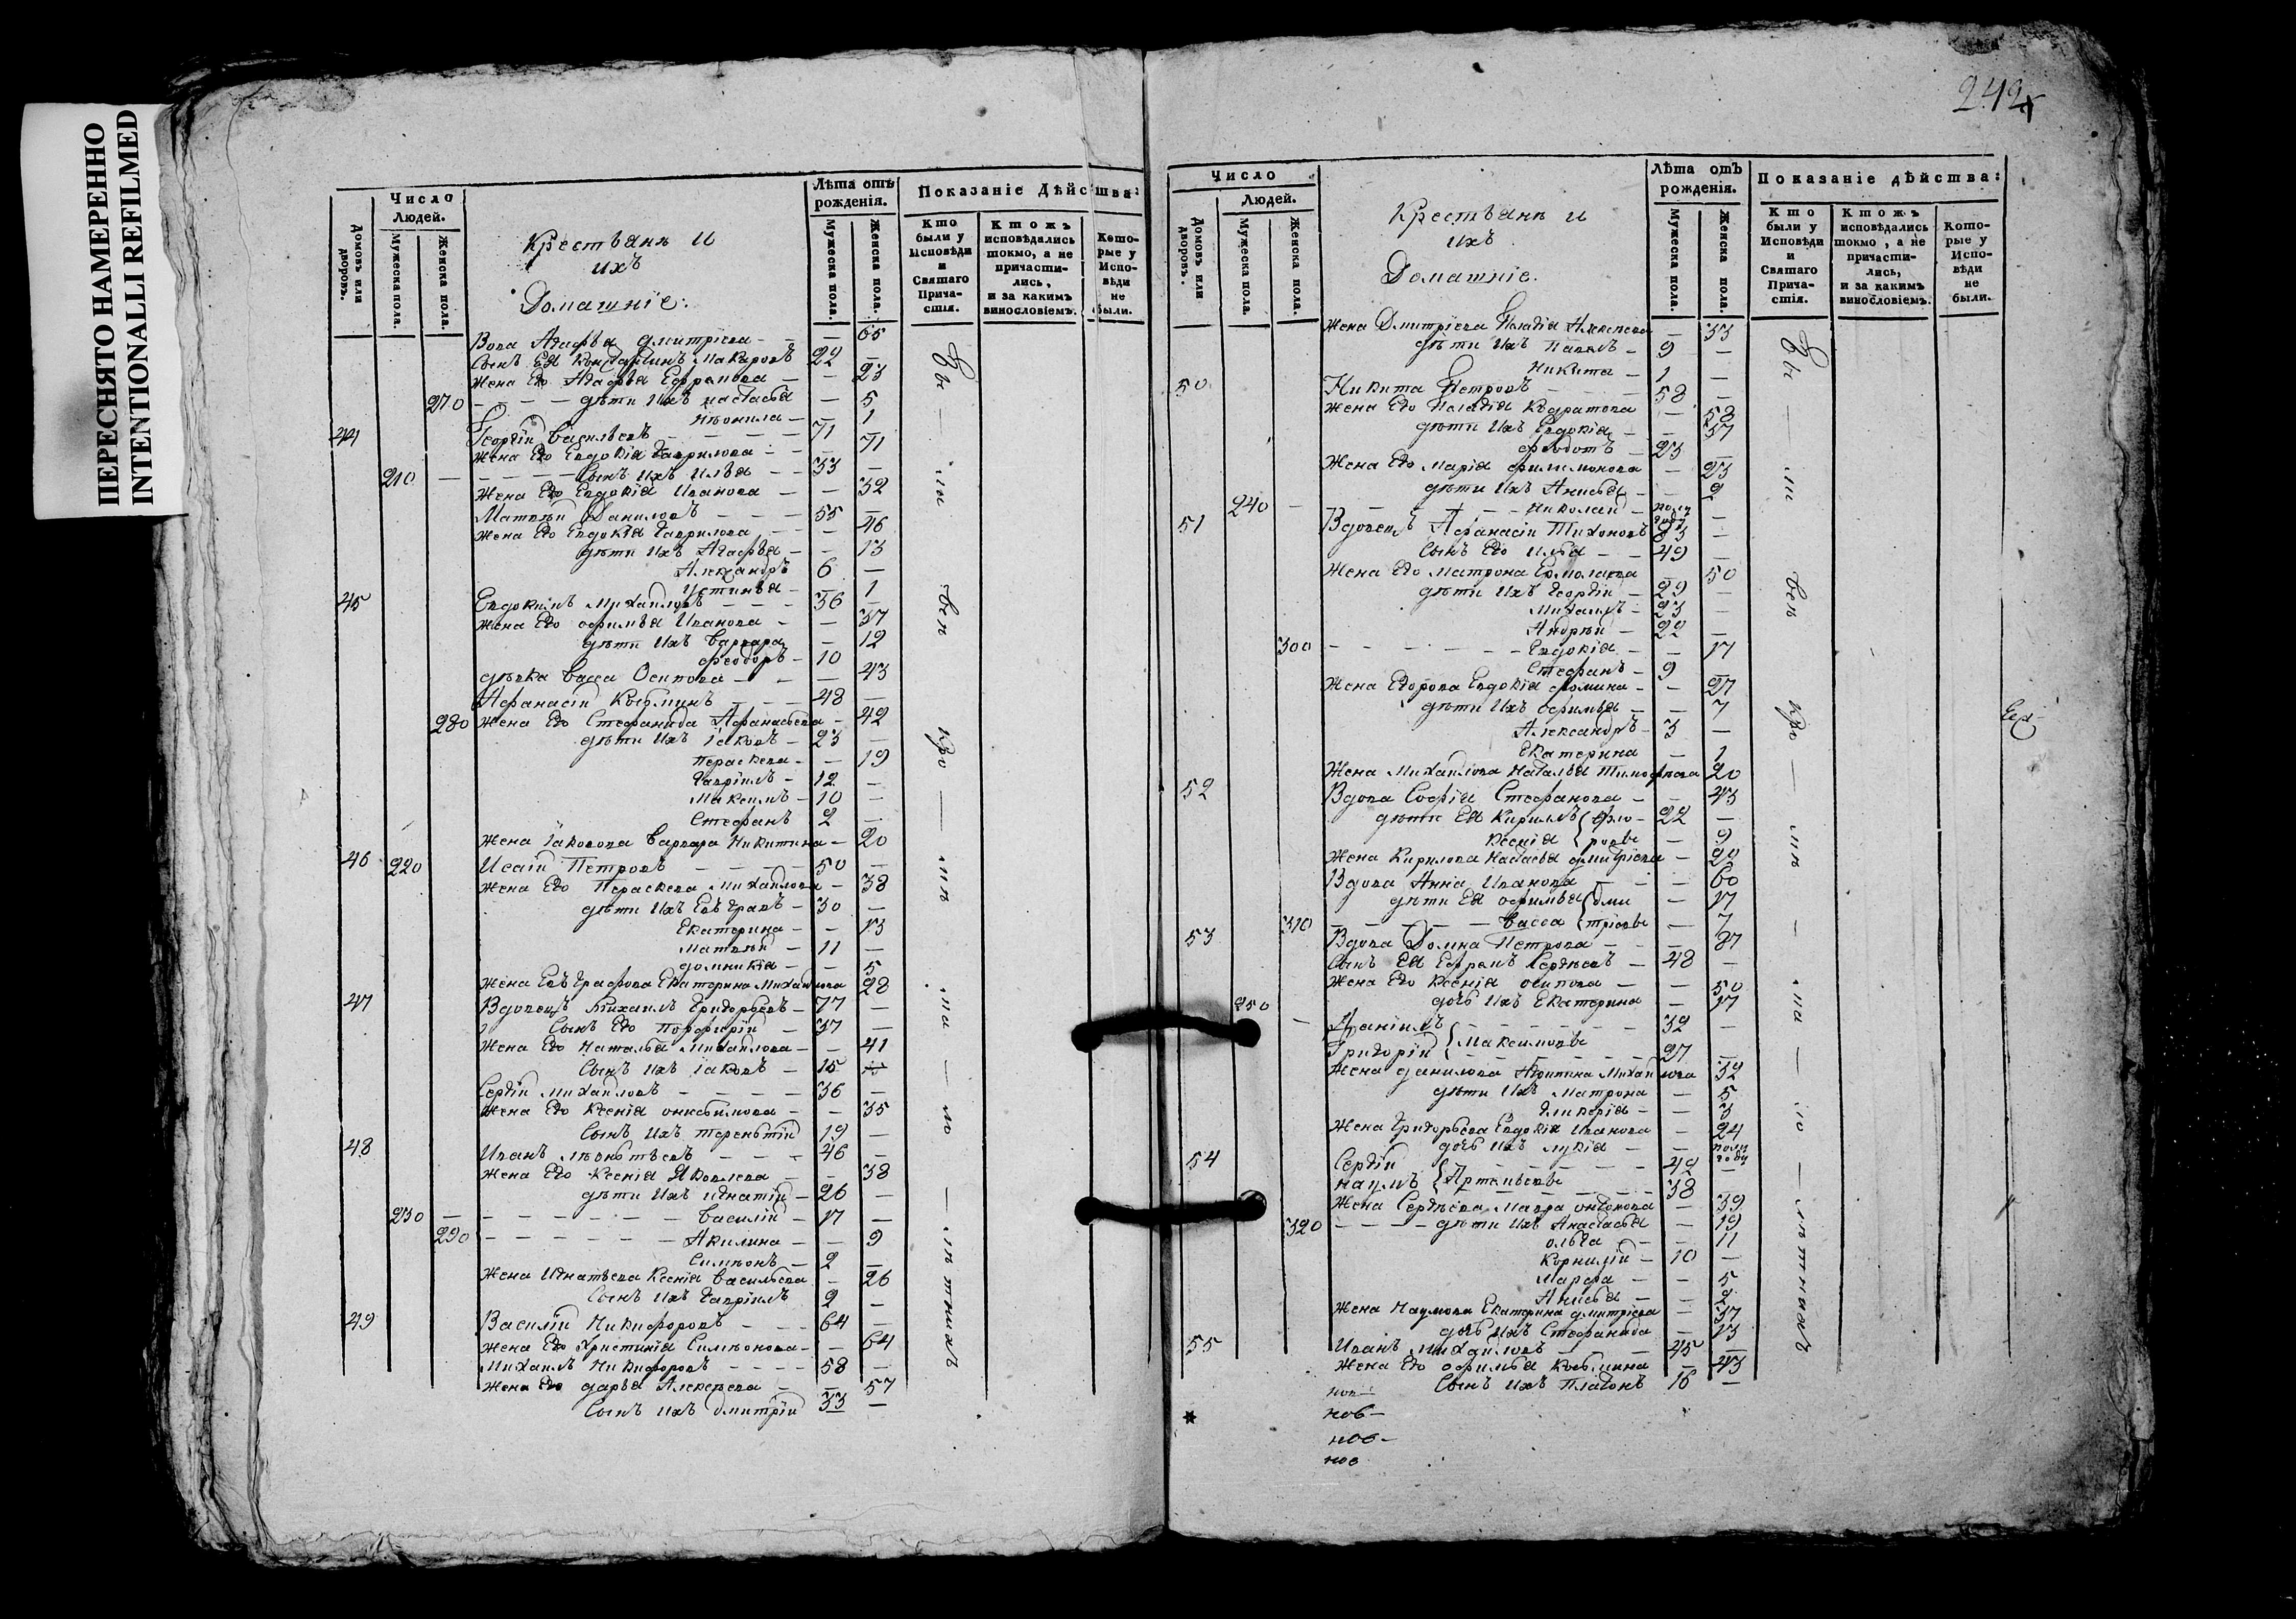 ПЕРЕСНЯТО НАМЕРЕННО
INTENTIONALLI REFILMED
Число
Людей.
Домовъ или дворовъ.
Мужеска пола.
Женска пола.
Крестьянѣ и
ихъ
Домашніе:
Лѣта отъ рожденія.
Мужеска пола.
Женска пола.
Показаніе Дѣйства:
Кто были у Исповѣди и Святаго Причастія.
Ктожъ исповѣдались токмо, а не причастились, и за какимъ винословіемъ.
Которые у Исповѣди не были.
Вдова Агафья Дмитріева — 65
Сынъ Ея Макаровъ 22 —
Жена Его Агафья — 23
270 — дѣти Ихъ Настасья — 5
— 1
44 Георгій Васильевъ 71 —
Жена Его Евдокія Гаврилова — 71
210 — Сынъ Ихъ Илья 33 —
Жена Его Евдокія Иванова — 32
Матвѣй Даниловъ 55 —
Жена Его Евдокія Гаврилова — 46
дѣти Ихъ Агафья — 13
Александръ 6 —
Устинья — 1
45 Евдокимъ Михайловъ 36 —
Жена Его Офимья Иванова — 37
дѣти Ихъ Варвара — 12
Феодоръ 10 —
дѣвка Васса Осипова — 43
Афанасій Козминъ 48 —
280 Жена Его Стефанида Афанасьева — 42
дѣти Ихъ Іаковъ 23 —
Параскева — 19
Гавріилъ 12 —
Максимъ 10 —
Стефанъ 2 —
Жена Іаковова Варвара Никитина — 20
46 220 Исай Петровъ 50 —
Жена Его Параскева Михайлова — 38
дѣти Ихъ Евграфъ 30 —
Екатерина — 13
Матвѣй 11 —
Домникія — 5
Жена Евграфова Екатерина Михайлова 28
47 Вдовецъ Михаилъ Григорьевъ 77 —
Сынъ Его Порфирій 37 —
Жена Его Наталья Михайлова — 41
Сынъ Ихъ Іаковъ 15
Сергій Михайловъ 36 —
Жена Его Ксенія Онисимова — 35
Сынъ Ихъ Терентій 19 —
48 Иванъ Леонтьевъ 46 —
Жена Его Ксенія Яковлева — 38
дѣти Ихъ Игнатій 26 —
230 — Василій 17 —
290 — Акилина — 9
Симеонъ 2 —
Жена Игнатьева Ксенія Васильева — 26
Сынъ Ихъ Гавріилъ 2 —
49 Василій Никифоровъ 64 —
Жена Его Христинія Симеонова — 64
Михаилъ Никифоровъ 58 —
Жена Его Дарья Алексѣева — 57
Сынъ Ихъ Дмитрій 33 —
242
Число
Людей.
Домовъ или дворовъ.
Мужеска пола.
Женска пола.
Крестьянѣ и
ихъ
Домашніе.
Лѣта отъ рожденія.
Мужеска пола.
Женска пола.
Показаніе дѣйства:
Кто были у Исповѣди и Святаго Причастія.
Ктожъ исповѣдались токмо, а не причастились, и за какимъ винословіемъ.
Которые у Исповѣди не были.
Жена Дмитріева Пелагія Алексѣева — 33
дѣти Ихъ Павелъ 9 —
Никита 1 —
50 Никита Петровъ 58 —
Жена Его Пелагія — 58
дѣти Ихъ Евдокія — 37
Феодотъ 23 —
Жена Его Марія Филимонова — 23
дѣти Ихъ Анисья — 2
240 — Николай полугоду —
51 Вдовецъ Афанасій Тихоновъ 83 —
Сынъ Его Илья 49 —
Жена Его Матрона Ермолаева — 50
дѣти Ихъ Георгій 29 —
Михаилъ 23 —
Андрей 22 —
300 — Евдокія — 17
Стефанъ 9 —
Жена Егорова Евдокія Фомина — 27
дѣти Ихъ Офимья — 7
Александръ 3 —
Екатерина — 1
Жена Михайлова Наталья Тимофѣева 20
52 Вдова Софія Стефанова — 43
дѣти Ея Кириллъ Фло- 22 —
Ксенія ровы — 9
Жена Кирилова Настасья Дмитріева — 20
Вдова Анна Иванова — 60
дѣти Ея Офимья Дми — 17
310 — Васса тріевы — 7
53 Вдова Домна Петрова — 87
Сынъ Ея Ефремъ Сергѣевъ 48 —
Жена Его Ксенія Осипова — 50
дочь Ихъ Екатерина — 17
250 — Даніилъ 32 —
Григорій Максимовы 27 —
Жена Данилова Михайлова 32
дѣти Ихъ Матрона — 5
Гликерія — 3
Жена Григорьева Евдокія Иванова — 24
дочь Ихъ Лукія — полугоду
54 Сергій 42 —
Наумъ Артемьевы 38 —
Жена Сергѣева Мавра Антонова — 39
320 — дѣти Ихъ Анастасья — 19
Ольга — 11
Корнилій 10 —
Марфа — 5
Анисья — 2
Жена Наумова Екатерина Дмитріева — 37
дочь Ихъ Стефанида — 13
55 Иванъ Михайловъ 45 —
Жена Его Офимья Козмина — 43
Сынъ Ихъ Платонъ 16 —